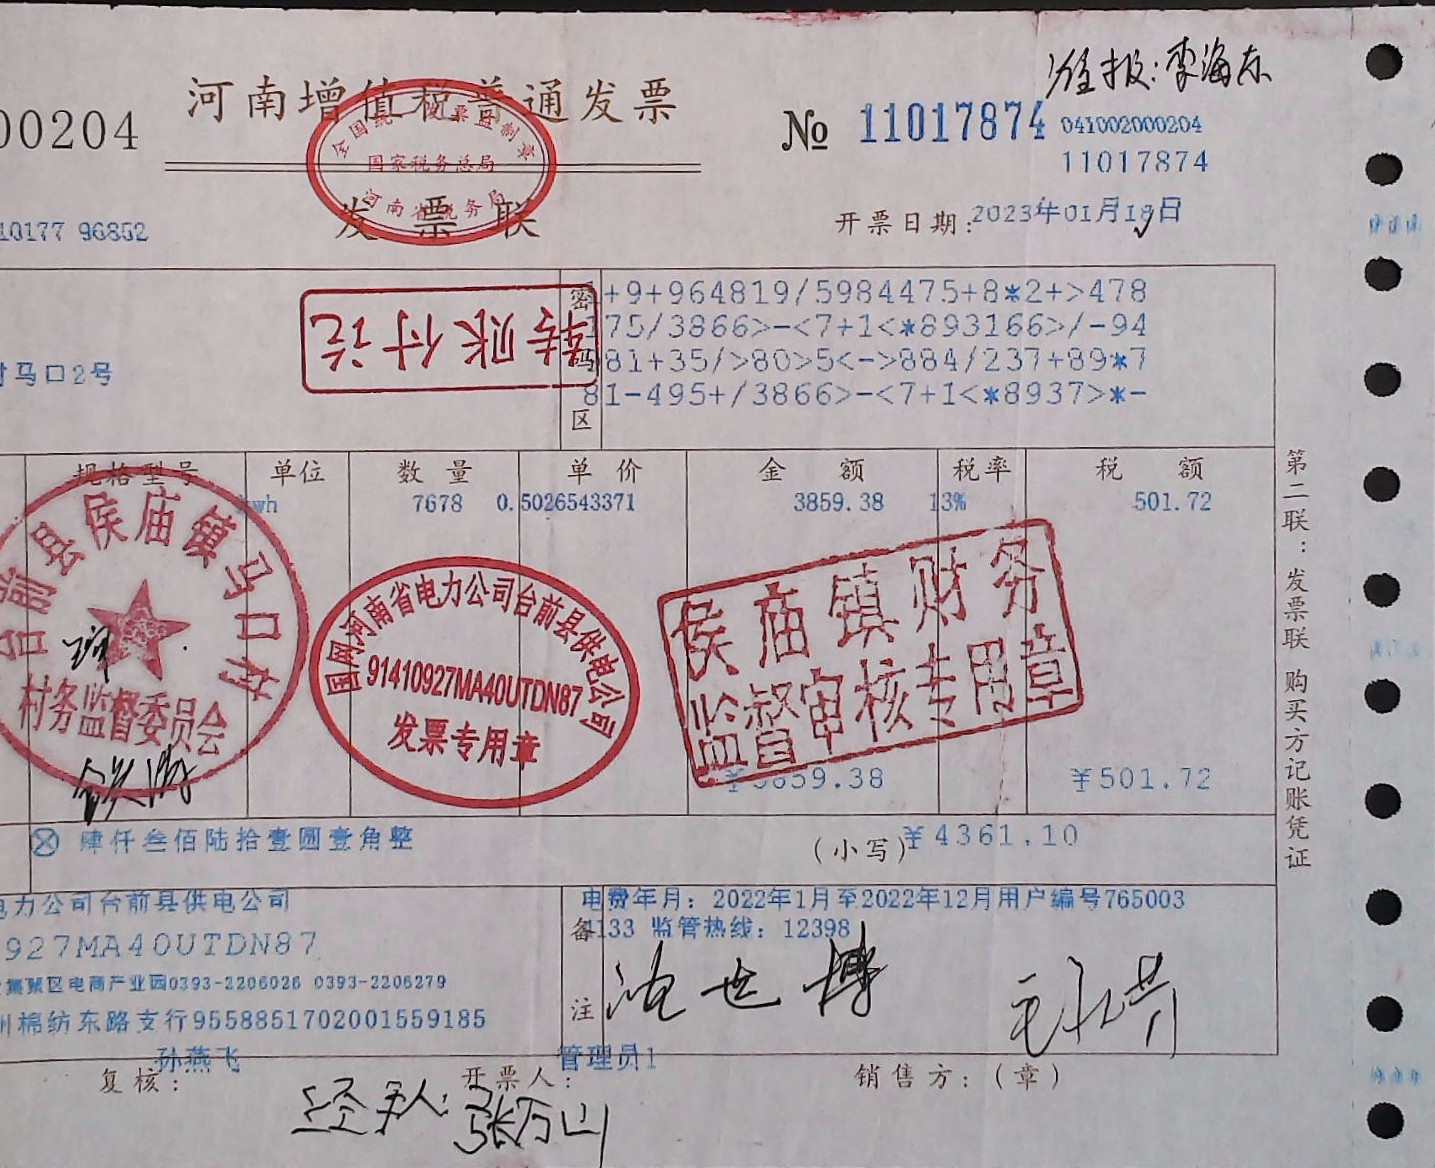 00204
河南增值税普通发票
全国统一发票监制章
国家税务总局
河南省税务局
发票联
№ 11017874
准报:李海东
041002000204
11017874
10177 96852
开票日期:2023年01月18日
马口2号
转账付讫
密码区
+9+964819/5984475+8*2+>478
175/3866>-<7+1<*893166>/-94
81+35/>80>5<->884/237+89*7
81-495+/3866>-<7+1<*8937>*-
规格型号 单位 数量 单价 金额 税率 税额
kwh 7678 0.5026543371 3859.38 13% 501.72
台前县侯庙镇马口村
村务监督委员会
国网河南省电力公司台前县供电公司
91410927MA40UTDN87
发票专用章
侯庙镇财务
监督审核专用章
¥3859.38 ¥501.72
ⓧ 肆仟叁佰陆拾壹圆壹角整 (小写)¥4361.10
电力公司台前县供电公司
927MA40UTDN87
集聚区电商产业园0393-2206026 0393-2206279
州棉纺东路支行9558851702001559185
备注
电费年月:2022年1月至2022年12月用户编号765003
4133 监管热线:12398
孙燕飞 管理员1
复核: 开票人: 销售方:(章)
经手人:张万山
第二联:发票联 购买方记账凭证